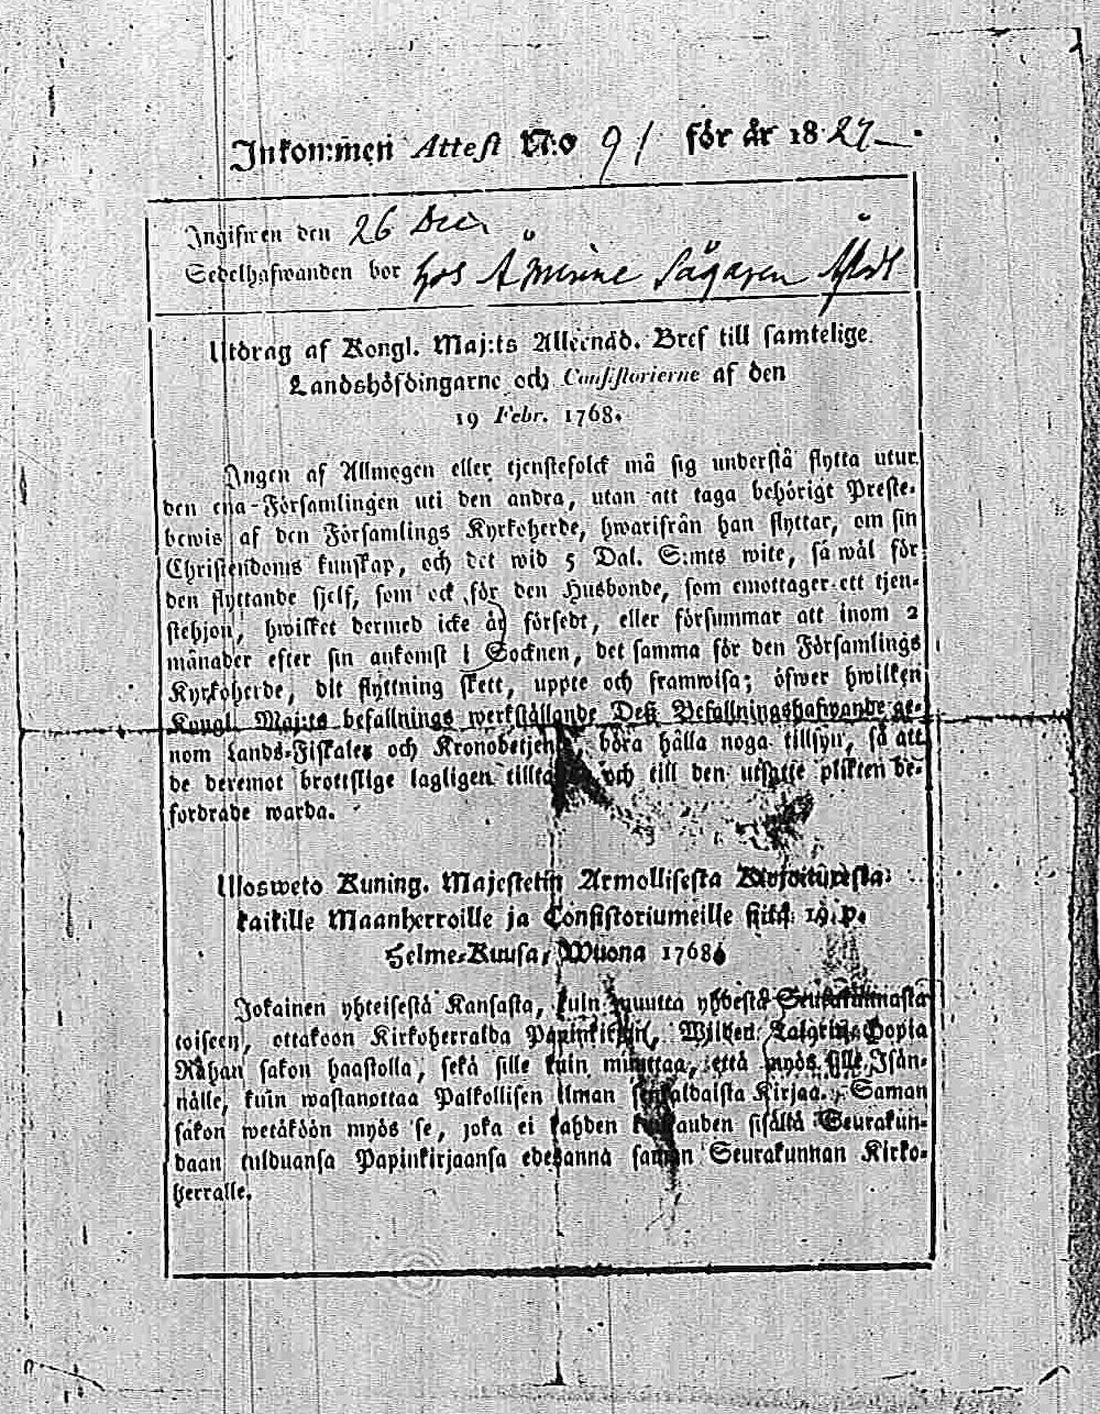 Inkommen Attest N:o 91 för år 1827
Ingifwen den 26 Decr
Sedelhafwanden bor hos
Utdrag af Kongl. Maj:ts Allernåd. Bref till samtelige
Landshöfdingarne och Consistorierne af den
19 Febr. 1768.
Ingen af Allmogen eller tjenstefolck må sig understå flytta utur
den ena Församlingen uti den andra, utan att taga behörigt Preste-
bewis af den Församlings Kyrkoherde, hwarifrån han flyttar, om sin
Christendoms kunskap, och det wid 5 Dal. S:mts wite, så wäl för
den flyttande sjelf, som ock för den Husbonde, som emottager ett tjen-
stehjon, hwilket dermed icke är försedt, eller försummar att inom 2
månader efter sin ankomst i Socknen, det samma för den Församlings
Kyrkoherde, dit flyttning skett, uppte och framwisa; öfwer hwilken
Kongl. Maj:ts befallnings werkställande Deß Befallningshafwande ge-
nom Lands-Fiskaler och Kronobetjening, böra hålla noga tillsyn, så att
de deremot brottslige lagligen och till den utsatte plikten be-
fordrade warda.
Ulosweto Kuning. Majestetin Armollisesta
kaikille Maanherroille ja Consistoriumeille sitä 19. p.
Helme-Kuusa, Wuona 1768.
Jokainen yhteisestä Kansasta, kuin muutta yhdestä Seurakunnasta
toiseen, ottakoon Kirkoherralda Papinkirjan, Wijden Dopia
Rahan sakon haastolla, sekä sille kuin muuttaa, että myös sille Isän-
nälle, kuin wastanottaa Palkollisen ilman senkaldaista Kirjaa. Saman
sakon wetäköön myös se, joka ei kahden kuukauden sisällä Seurakun-
daan tulduansa Papinkirjaansa edesanna saman Seurakunnan Kirko-
herralle.